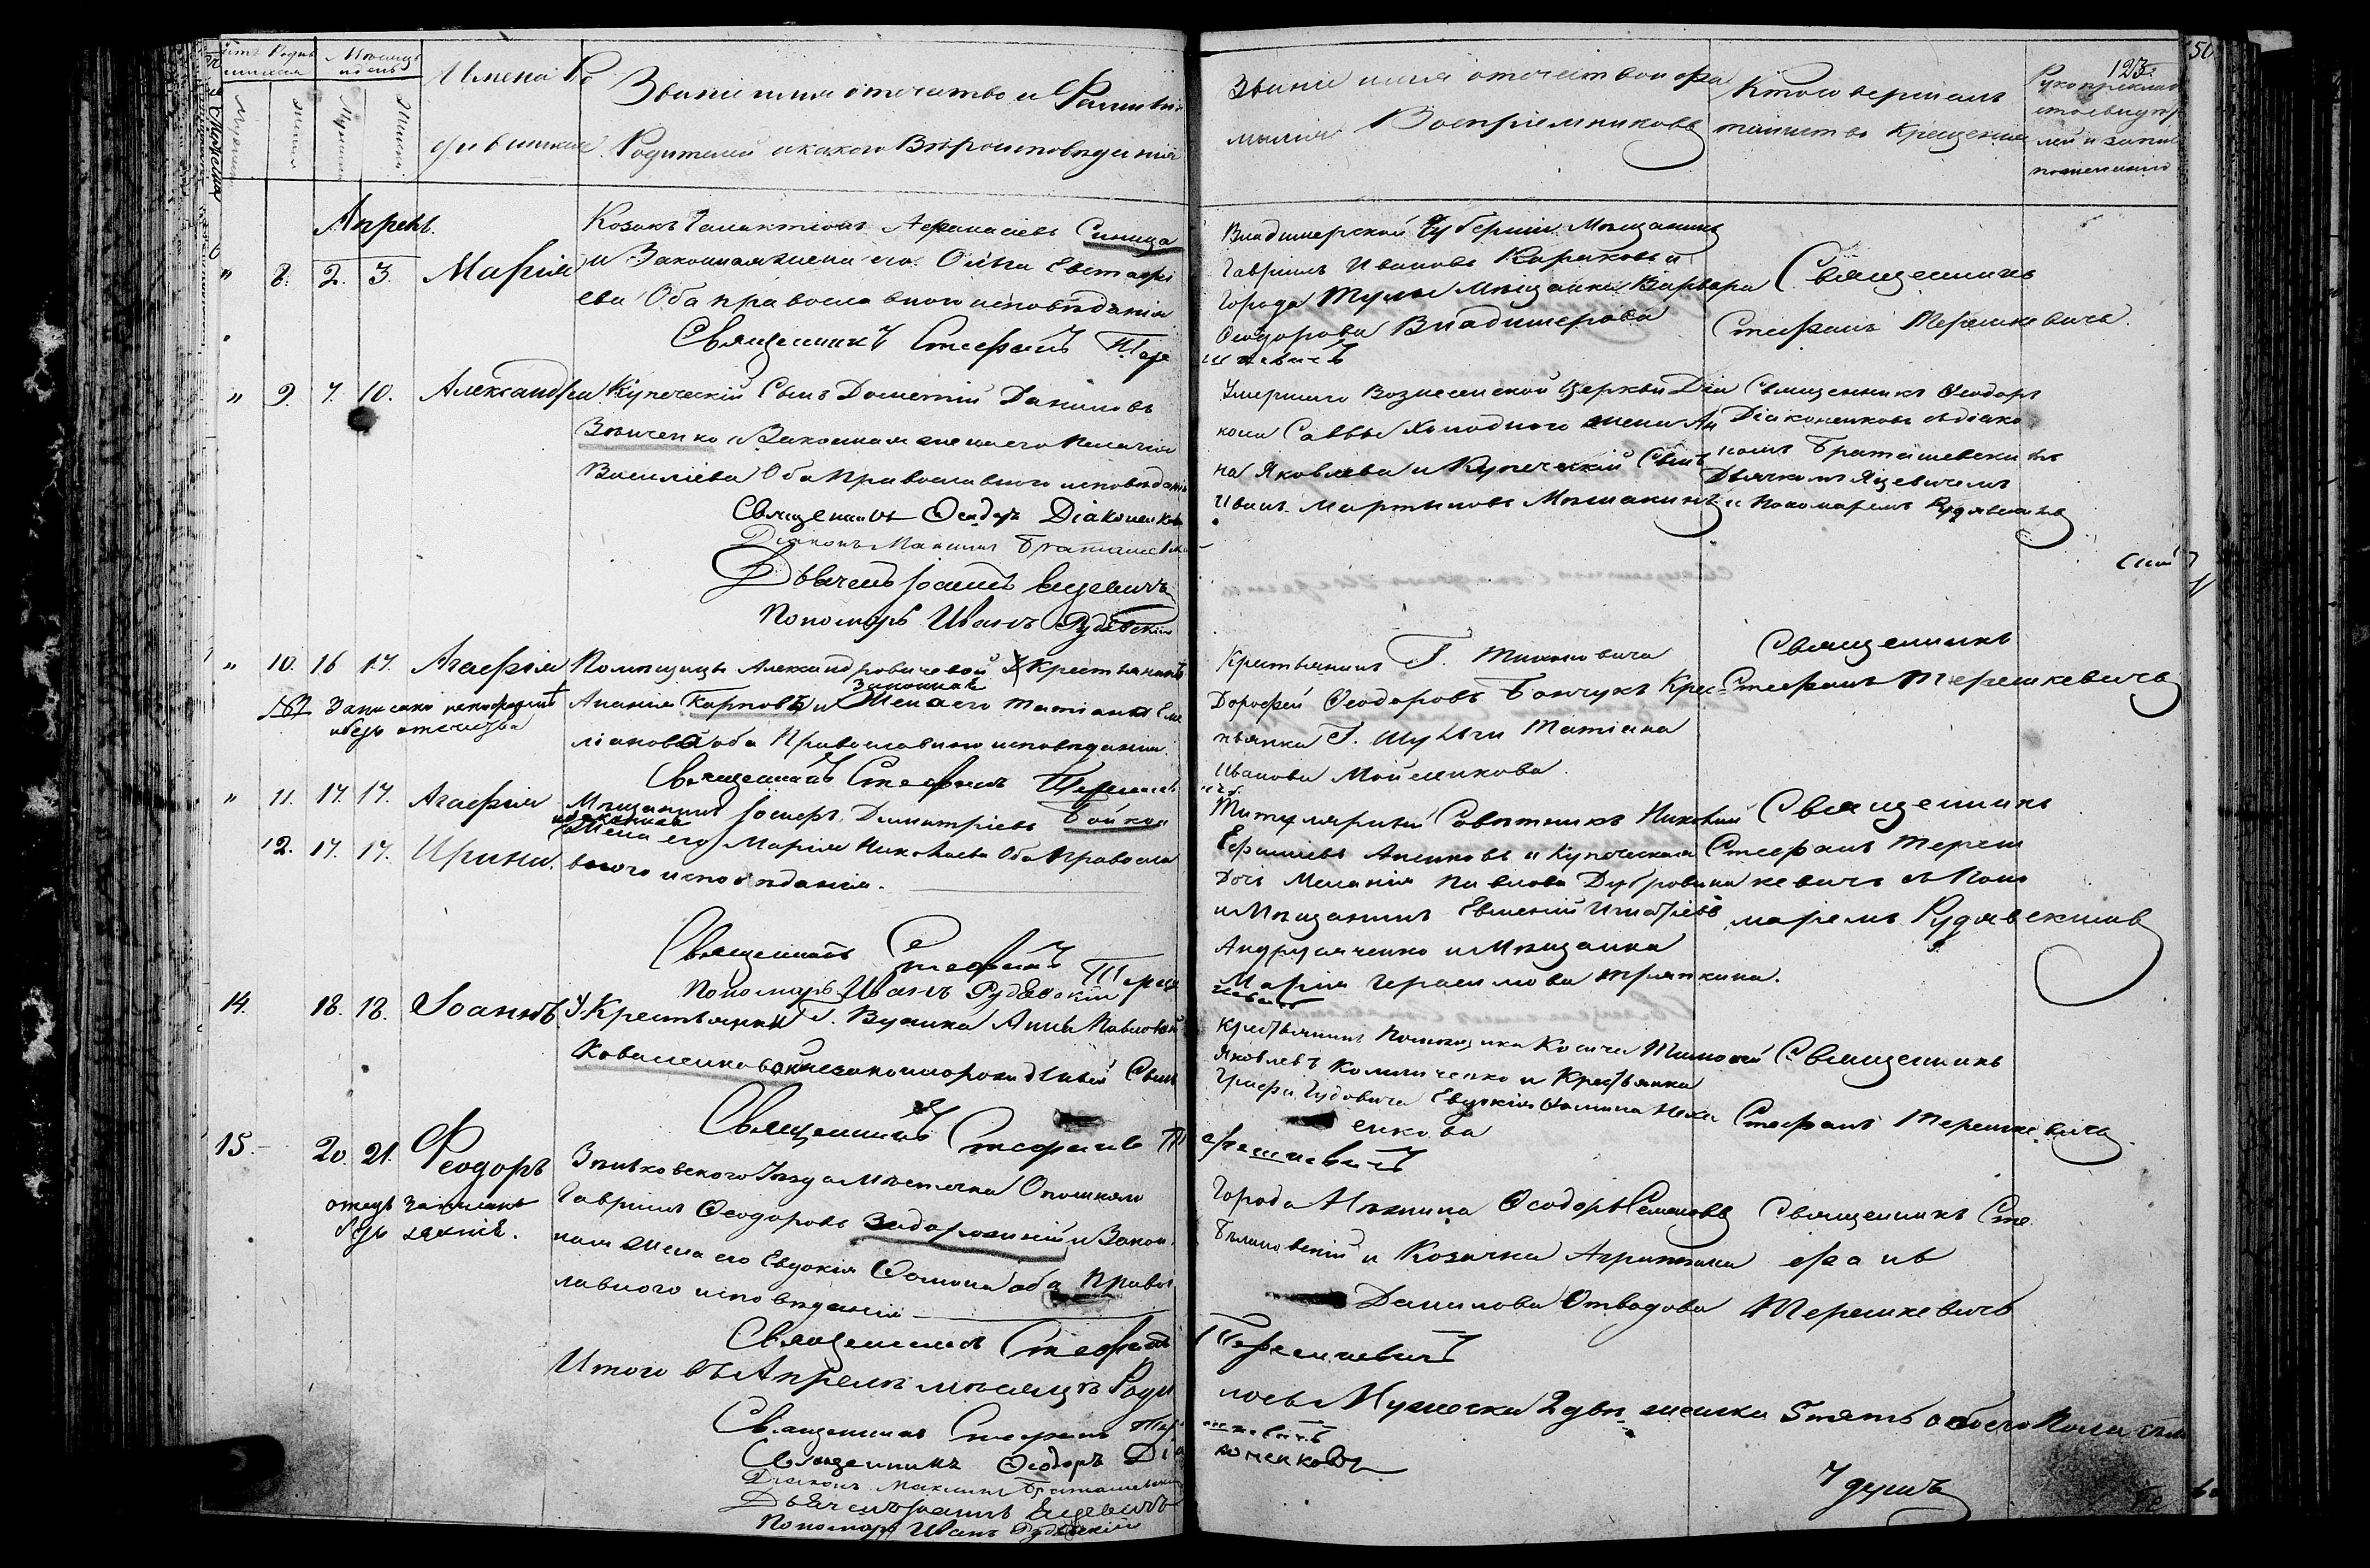 123.
50
Мѣсяцъ
и день
Имена Ро
дившихся.
Званіе имя отечество и Фамилія
Родителей и какого Вѣроисповѣданія
Званіе имя отечество и фа
милія Воспріемниковъ
Кто совершалъ
таинство Крещенія
Апрель.
" 8. 2. 3. Марія
Козакъ Галактіонъ Афанасіевъ Синица
и Законная жена его Ольга Евстафі
ева Оба православного исповѣданія
Священникъ Стефанъ Тере
шкевичъ
Владимерской Губерніи Мѣщанинъ
Гавріилъ Ивановъ Кариковъ и
Города Тулы Мѣщанка Варвара
Феодорова Владимерова
Священникъ
Стефанъ Терешкевичъ.
" 9. 7. 10. Александра
Купеческій Сынъ Дометій Даниловъ
Зѣнченко и Законная жена его Пелагія
Василіева Оба Православного исповѣданія
Священникъ Феодоръ Діаконенковъ
Діаконъ Максимъ Браташевскій
Дьячекъ Іоаннъ Яцевичъ
Пономарь Иванъ Рудавскій
Умершего Вознесенской Церкви Діа
кона Саввы Холодного жена Ан
на Яковлева и Купеческій Сынъ
Иванъ Мартыновъ Мѣшанинъ
Священникъ Феодоръ
Діаконенковъ съ діако
номъ Браташевскимъ
Дьячкомъ Яцевичемъ
и Пономаремъ Рудавскимъ
" 10. 16 17. Агафія
NB Записано
безъ отечества
Помѣщицы Александровичевой Крестьянинъ
Ананія Карповъ и Законная Жена его Татіана Еме
ліанова оба Православного исповѣданія.
Священникъ Стефанъ Терешке
вичъ
Крестьянинъ Г. Милорадовича
Дорофей Феодоровъ Бончукъ Крес
тьянка Г. Шульги Татіана
Иванова Мойсеенкова.
Священникъ
Стефанъ Терешкевичъ
" 11. 17. 17. Агафія
12. 17. 17. Ирина.
Мѣщанинъ Іосифъ Димитріевъ Бойко
и законная Жена его Марія Николаева Оба Правосла
вного исповѣданія.
Священникъ Стефанъ Тереш
кевичъ
Пономарь Иванъ Рудавскій
Титулярный Совѣтникъ Николай
Ефимовъ Асенковъ и Купеческая
Дочь Меланія Павлова Дубровина
и Мѣщанинъ Евменій Игнатіевъ
Андрущенко и Мѣщанка
Марія Герасимова Тряпкина.
Священникъ
Стефанъ Тереш
кевичъ съ Поно
маремъ Рудавскимъ
14. 18. 18. Іоаннъ.
У Крестьянки Г. Вуяхва Анны Павловой
Коваленковой незаконнорожденный Сынъ
Священникъ Стефанъ Т
ерешкевичъ
Крестьянинъ Помѣщика Косича Тимофей
Яковлевъ Колиниченко и Крестьянка
Графа Гудовича Евдокія Фомина Неха
енкова
Священникъ
Стефанъ Терешкевичъ
15. 20. 21. Феодоръ
отецъ записанъ
безъ званія.
Зѣньковского Уѣзда Мѣстечка Опошнаго
Гавріилъ Феодоровъ Задорожній и Закон
ная жена его Евдокія Фомина оба Правос
лавного исповѣданія
Священникъ Стефанъ
Терешкевичъ
Города Нѣжина Феодоръ Семеновъ
Бѣлановскій и Козачка Агрипина
Данилова Отводова
Священникъ Сте
фанъ
Терешкевичъ
Итого въ Апрелѣ мѣсяцѣ Роди
лось Мужеска 2 двѣ женска 5 пять обоего Пола семь
7 душъ
Священникъ Стефанъ Тере
шкевичъ
Священникъ Феодоръ Діа
коненковъ
Діаконъ Максимъ Браташевскій
Дьячекъ Іоаннъ Яцевичъ
Пономарь Иванъ Рудавскій